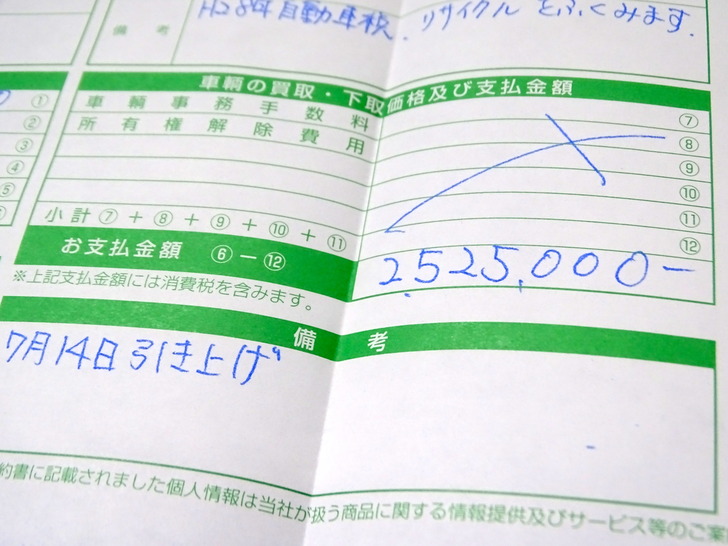 備考 H28年自動車税、リサイクルとふくみます.
車輌の買取・下取価格及び支払金額
① 車輌事務手数料 ⑦
② 所有権解除費用 ⑧
③ ⑨
④ ⑩
⑤ ⑪
⑥ 小計⑦+⑧+⑨+⑩+⑪ ⑫
お支払金額 ⑥-⑫ 2,525,000-
※上記支払金額には消費税を含みます。
備考
7月14日引き上げ
約書に記載されました個人情報は当社が扱う商品に関する情報提供及びサービス等のご案